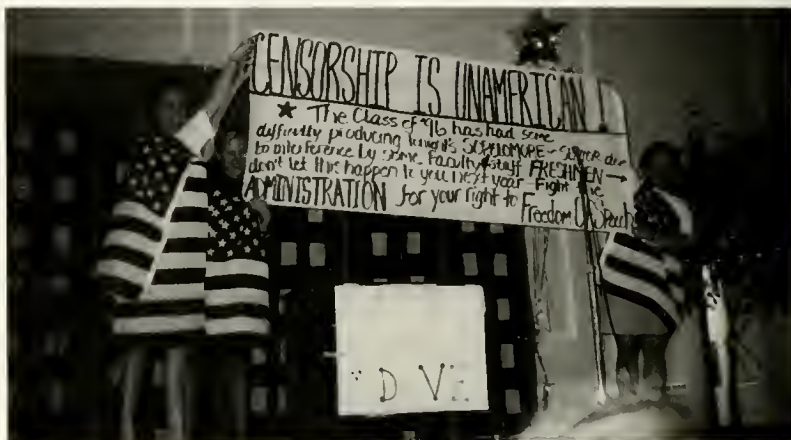 CENSORSHIP IS UNAMERICAN !
★ The Class of '96 has had some
difficulty producing tonight's SOPHOMORE - SUPPER due
to interference by some faculty & staff FRESHMEN →
don't let this happen to you next year - Fight the
ADMINISTRATION for your right to Freedom Of Speech
"D V